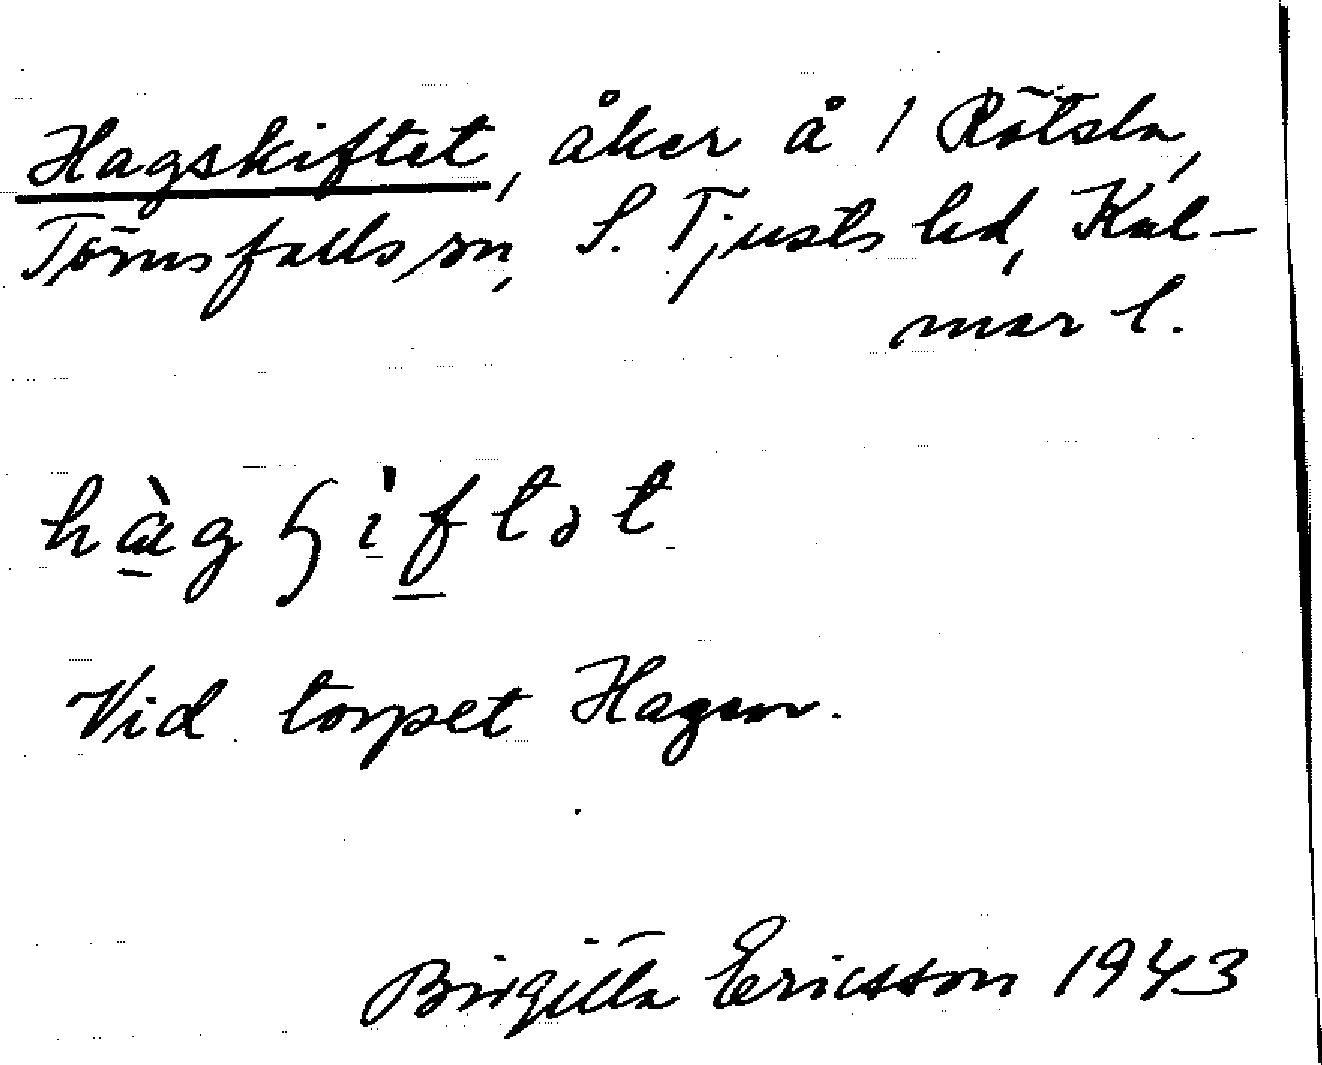 Hagskiftet, åker å 1 Rötsla,
Törnsfalls sn, S. Tjusts hd, Kal-
mar l.
hàgʃìftət
Vid torpet Hagen.
Birgitta Ericsson 1943